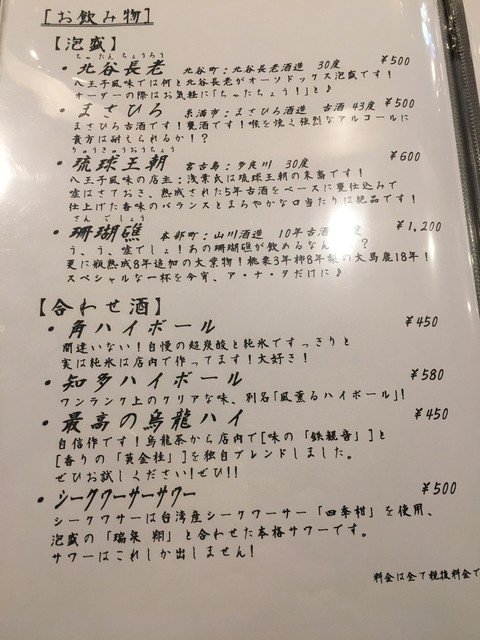 [お飲み物]
【泡盛】
ちゃたんちょうろう
・北谷長老 北谷町:北谷長老酒造 30度 ¥500
八王子風味では何と北谷長老がオーソドックス泡盛です!
オーダーの際はお気軽に「ちゃたちょう!」と♪
・まさひろ 糸満市:まさひろ酒造 古酒 43度 ¥500
まさひろ古酒です!甕酒です!喉を焼く強烈なアルコールに
貴方は耐えられるか!?
りゅうきゅうおうちょう
・琉球王朝 宮古島:多良川 30度 ¥600
八王子風味の店主:浅葉氏は琉球王朝の末裔です!
嘘はさておき、熟成された5年古酒をベースに甕仕込みで
仕上げた香味のバランスとまろやかな口当たりは絶品です!
さんごしょう
・珊瑚礁 本部町:山川酒造 10年古酒 ¥1,200
う、う、嘘でしょ!あの珊瑚礁が飲めるなん ?
更に瓶熟成8年追加の大業物!桃栗3年柿8年梨の大馬鹿18年!
スペシャルな一杯を今宵、ア・ナ・タだけに♪
【合わせ酒】
・角ハイボール ¥450
間違いない!自慢の超炭酸と純氷ですっきりと
実は純氷は店内で作ってます!大好き!
・知多ハイボール ¥580
ワンランク上のクリアな味、別名「風薫るハイボール」!
・最高の烏龍ハイ ¥450
自信作です!烏龍茶から店内で[味の「鉄観音」]と
[香りの「黄金桂」]を独自ブレンドしました。
ぜひお試しください!ぜひ!!
・シークワーサーサワー ¥500
シークワサーは台湾産シークワーサー「四季柑」を使用、
泡盛の「瑞泉 翔」と合わせた本格サワーです。
サワーはこれしか出しません!
料金は全て税抜料金で